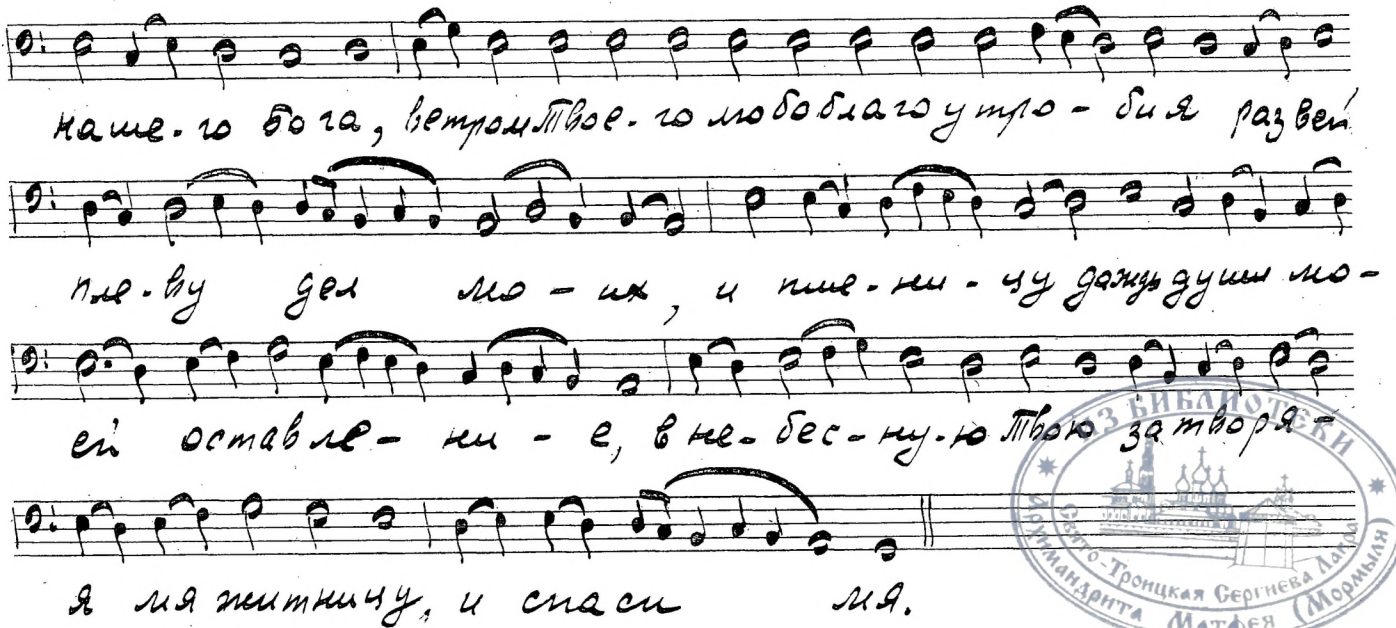 наше-го Бога, ветром Твое-го любоблагоутро-бия развей
пле-ву дел мо-их, и пше-ни-цу даждь души мо-
ей оставле-ни-е, в не-бес-ну-ю Твою затворя-
я мя житницу, и спаси мя.
ИЗ БИБЛИОТЕКИ
Свято-Троицкая Сергиева Лавра
Архимандрита Матфея (Мормыля)